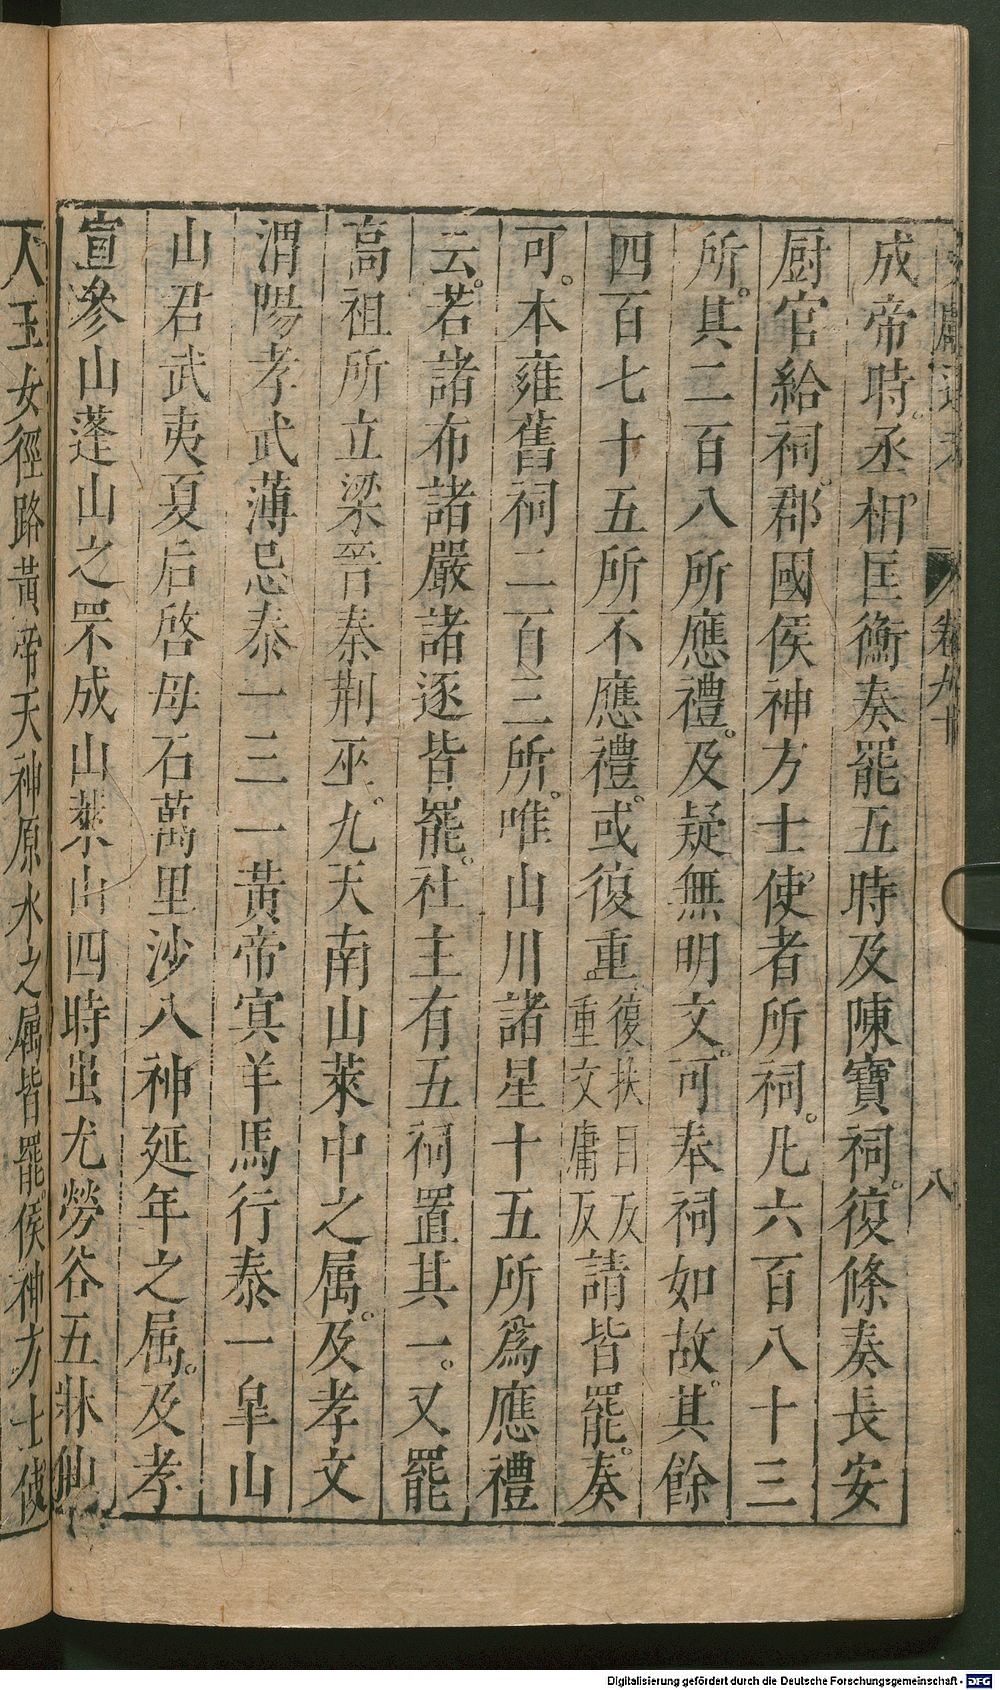 文獻通考 卷九十 八
成帝時。丞相匡衡奏罷五畤及陳寶祠。復條奏長安
厨官給祠。郡國侯神方士使者所祠。凡六百八十三
所。其二百八所應禮。及疑無明文。可奉祠如故。其餘
四百七十五所不應禮。或復重復扶目反重文庸反請皆罷。奏
可。本雍舊祠二百三所。唯山川諸星十五所爲應禮
云。若諸布諸嚴諸逐皆罷。社主有五祠置其一。又罷
高祖所立梁晉秦荆巫。九天南山萊中之属。及孝文
渭陽孝武薄忌泰一三一黃帝冥羊馬行泰一皐山
山君武夷夏后啓母石萬里沙八神延年之屈。及孝
宣參山蓬山之罘成山萊山四時蚩尤勞谷五牀仙
人玉女徑路黄帝天神原水之屬皆罷。侯神方士使
Digitalisierung gefördert durch die Deutsche Forschungsgemeinschaft - DFG